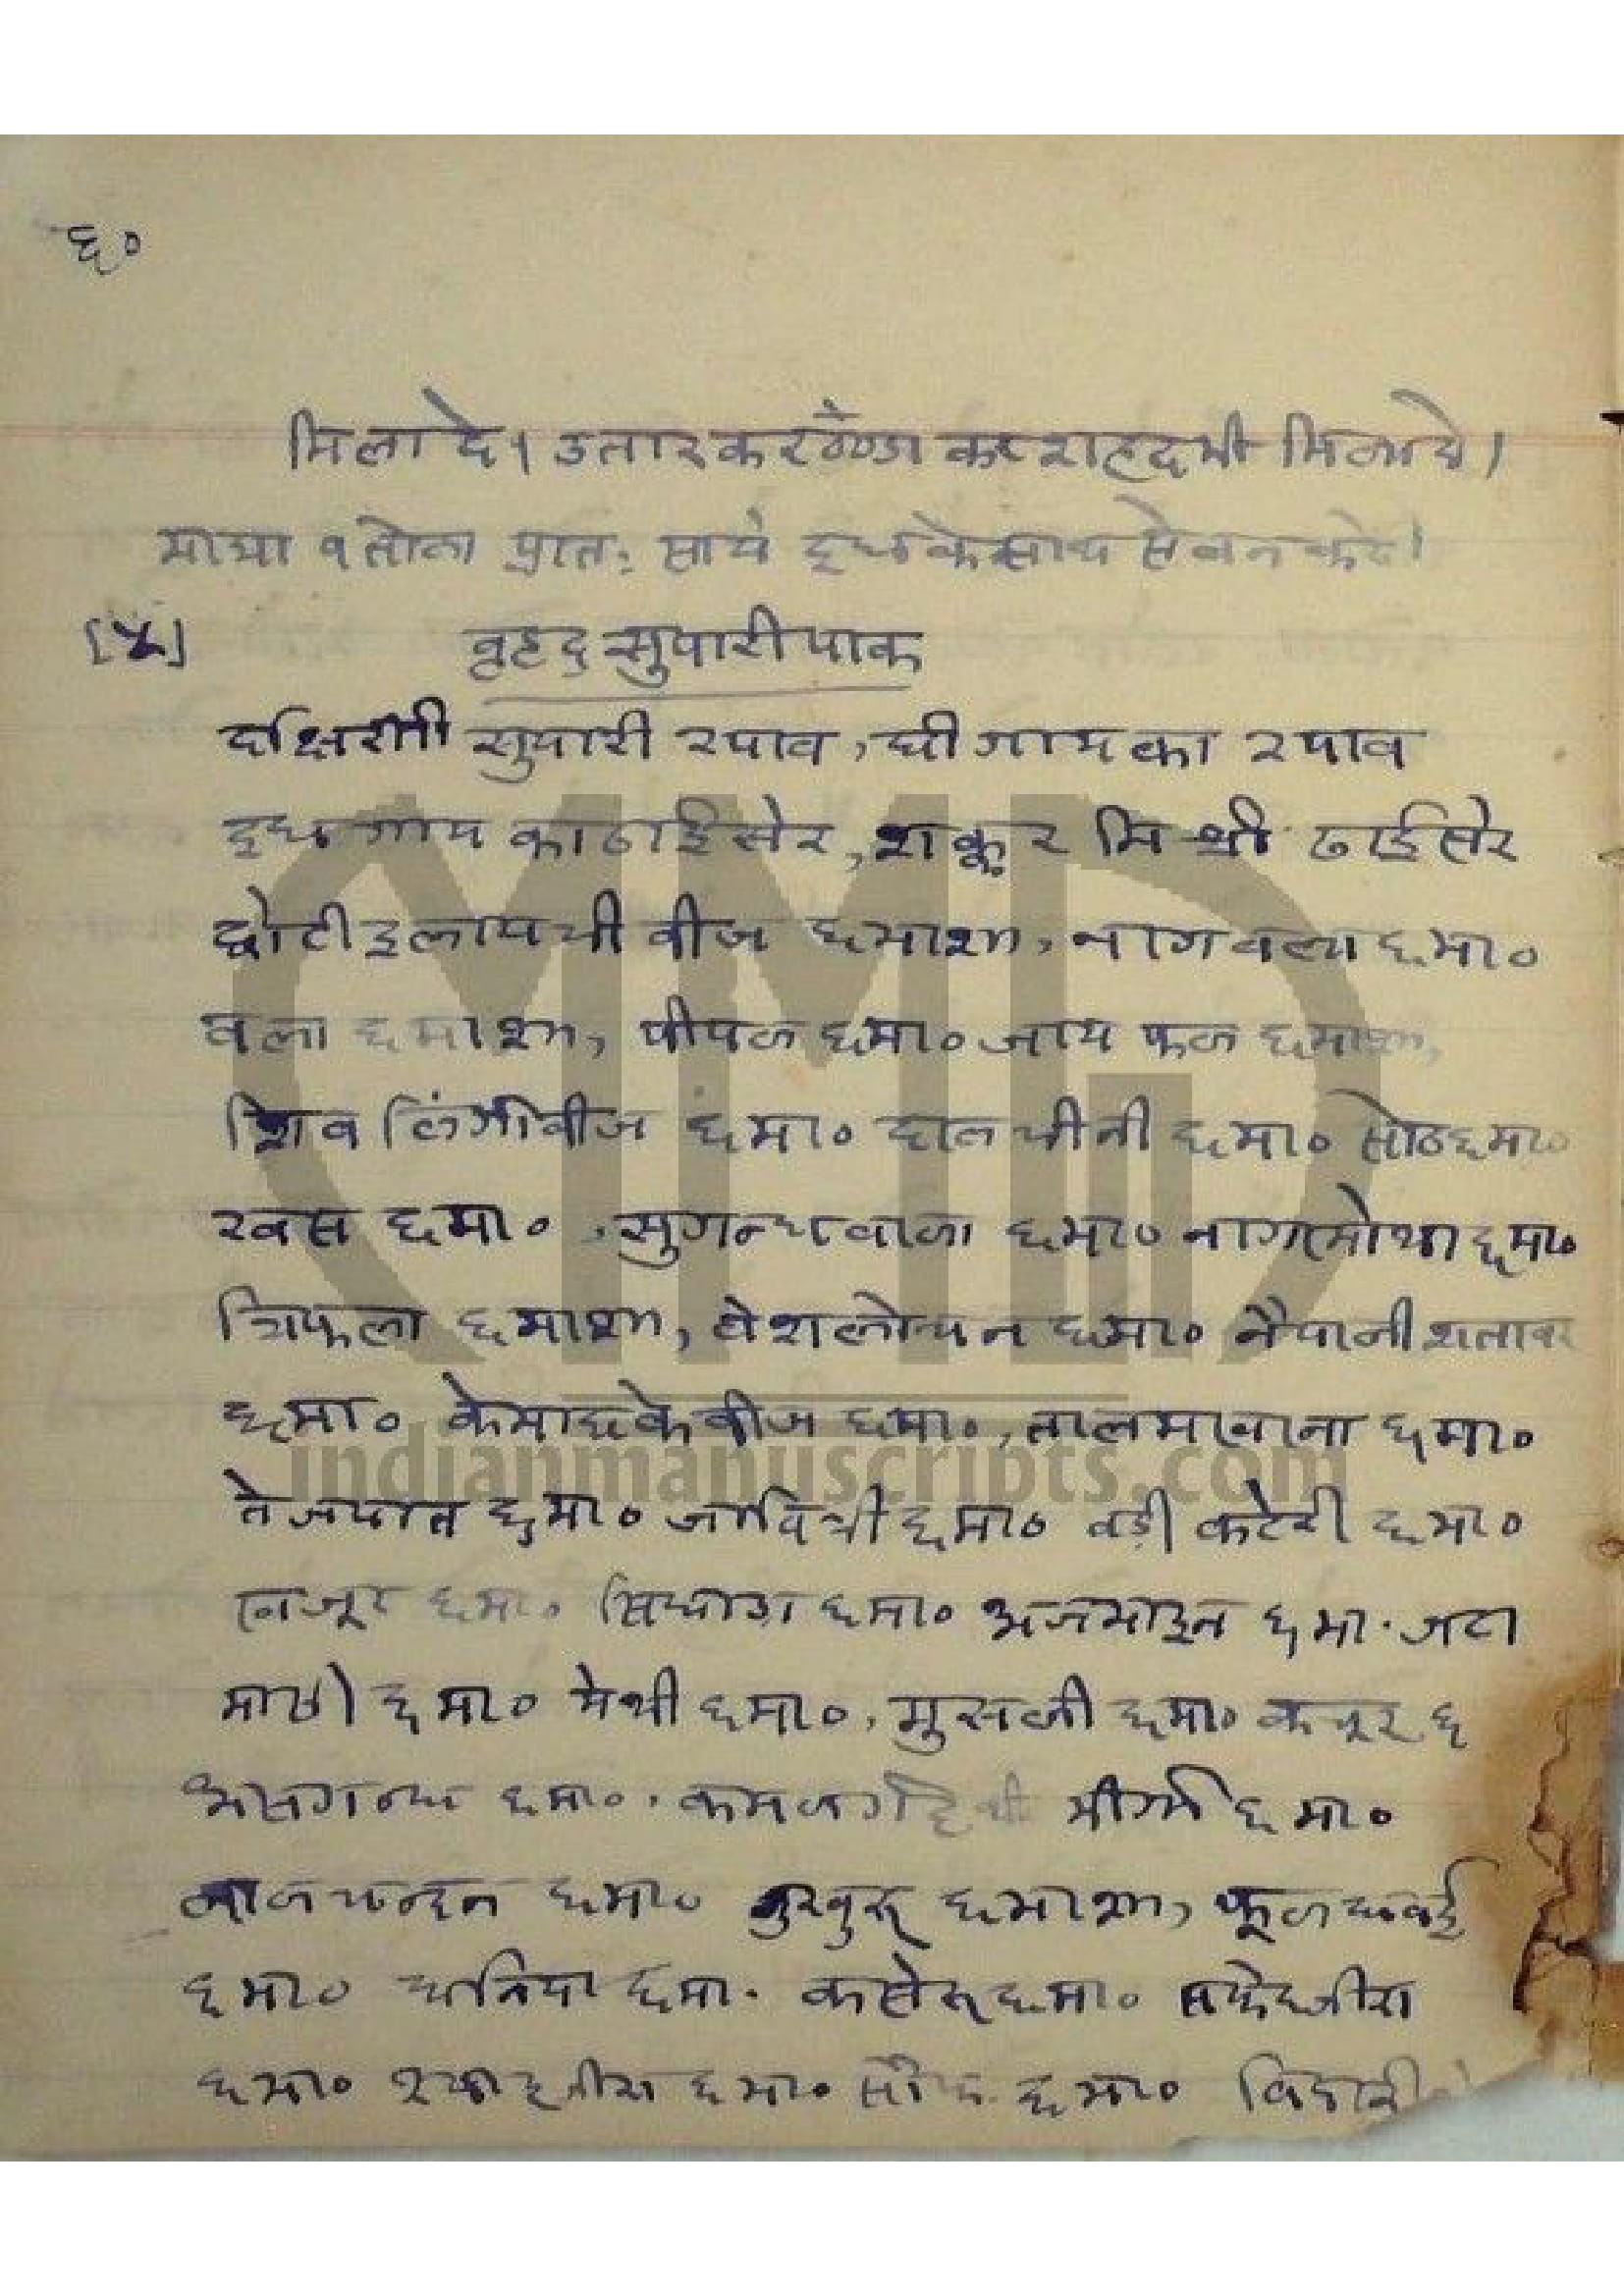 ६०
मिला दे। उतार कर ठण्डा कर शहद भी मिलाये।
मात्रा १ तोला प्रात: सायं दूध के साथ सेवन करें।
[५] वृहद सुपारी पाक
दक्षिणी सुपारी २ पाव, घी गाय का २ पाव
दूध गाय का ढाई सेर, शक्कर मिश्री ढाई सेर
छोटी इलायची बीज ६ माशा, नागवला ६ मा०
वला ६ माशा, पीपल ६ मा० जाय फल ६ माशा,
शिव लिंगी बीज ६ मा० दालचीनी ६ मा० सोंठ ६ मा०
खस ६ मा०, सुगन्धवाला ६ मा० नागरमोथा ६ मा०
त्रिफला ६ माशा, वंशलोचन ६ मा० नैपाली शतावर
६ मा० केमाछ के बीज ६ मा०, तालमखाना ६ मा०
तेजपात ६ मा० जावित्री ६ मा० वड़ी कटेरी ६ मा०
खजूर ६ मा० सिंघाड़ा ६ मा० अजमाइन ६ मा. जटा
मासी ६ मा० मेथी ६ मा०, मुसली ६ मा० कचूर ६
असगन्ध ६ मा०, कमलगट्टे की मींगी ६ मा०
लालचन्दन ६ मा० गुरखुरू ६ माशा, फूल धवई
६ मा० धनिया ६ मा. कसेरू ६ मा० सफेद जीरा
६ मा० स्याह जीरा ६ मा० सौंफ ६ मा० विदारी
MMD
indianmanuscripts.com